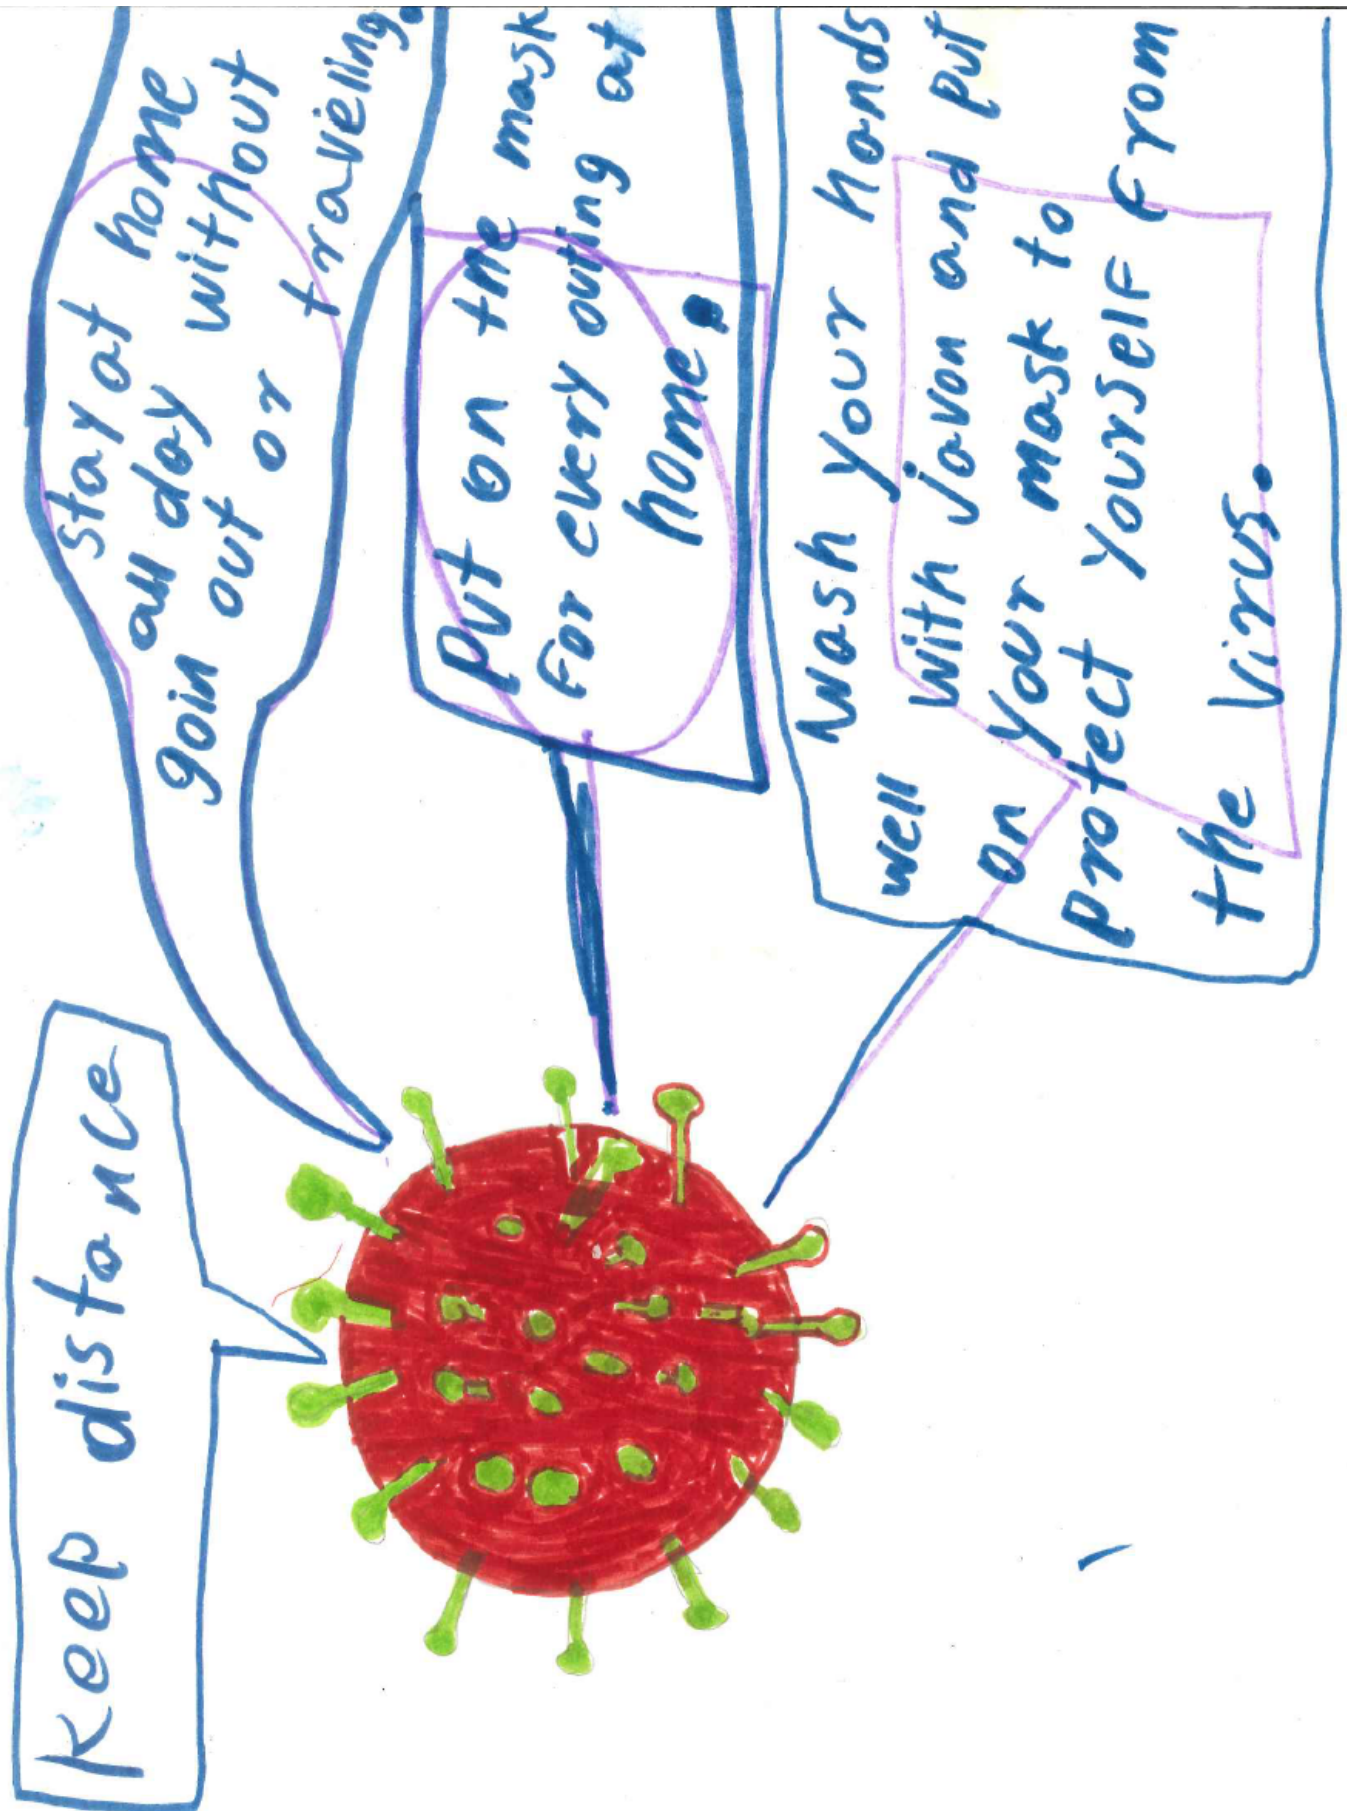 Keep distance
stay at home
all day without
goin out or
traveling.
Put on the mask
For every outing at
home.
Wash your hands
well with javon and put
on your mask to
protect yourself From
the virus.